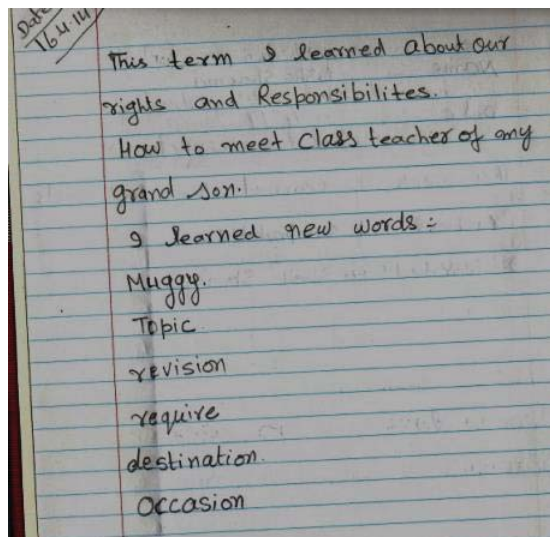 Date
16.4.14
This term I learned about our
rights and Responsibilites.
How to meet Class teacher of my
grand son.
I learned new words :-
Muggy.
Topic
revision
require
destination.
Occasion